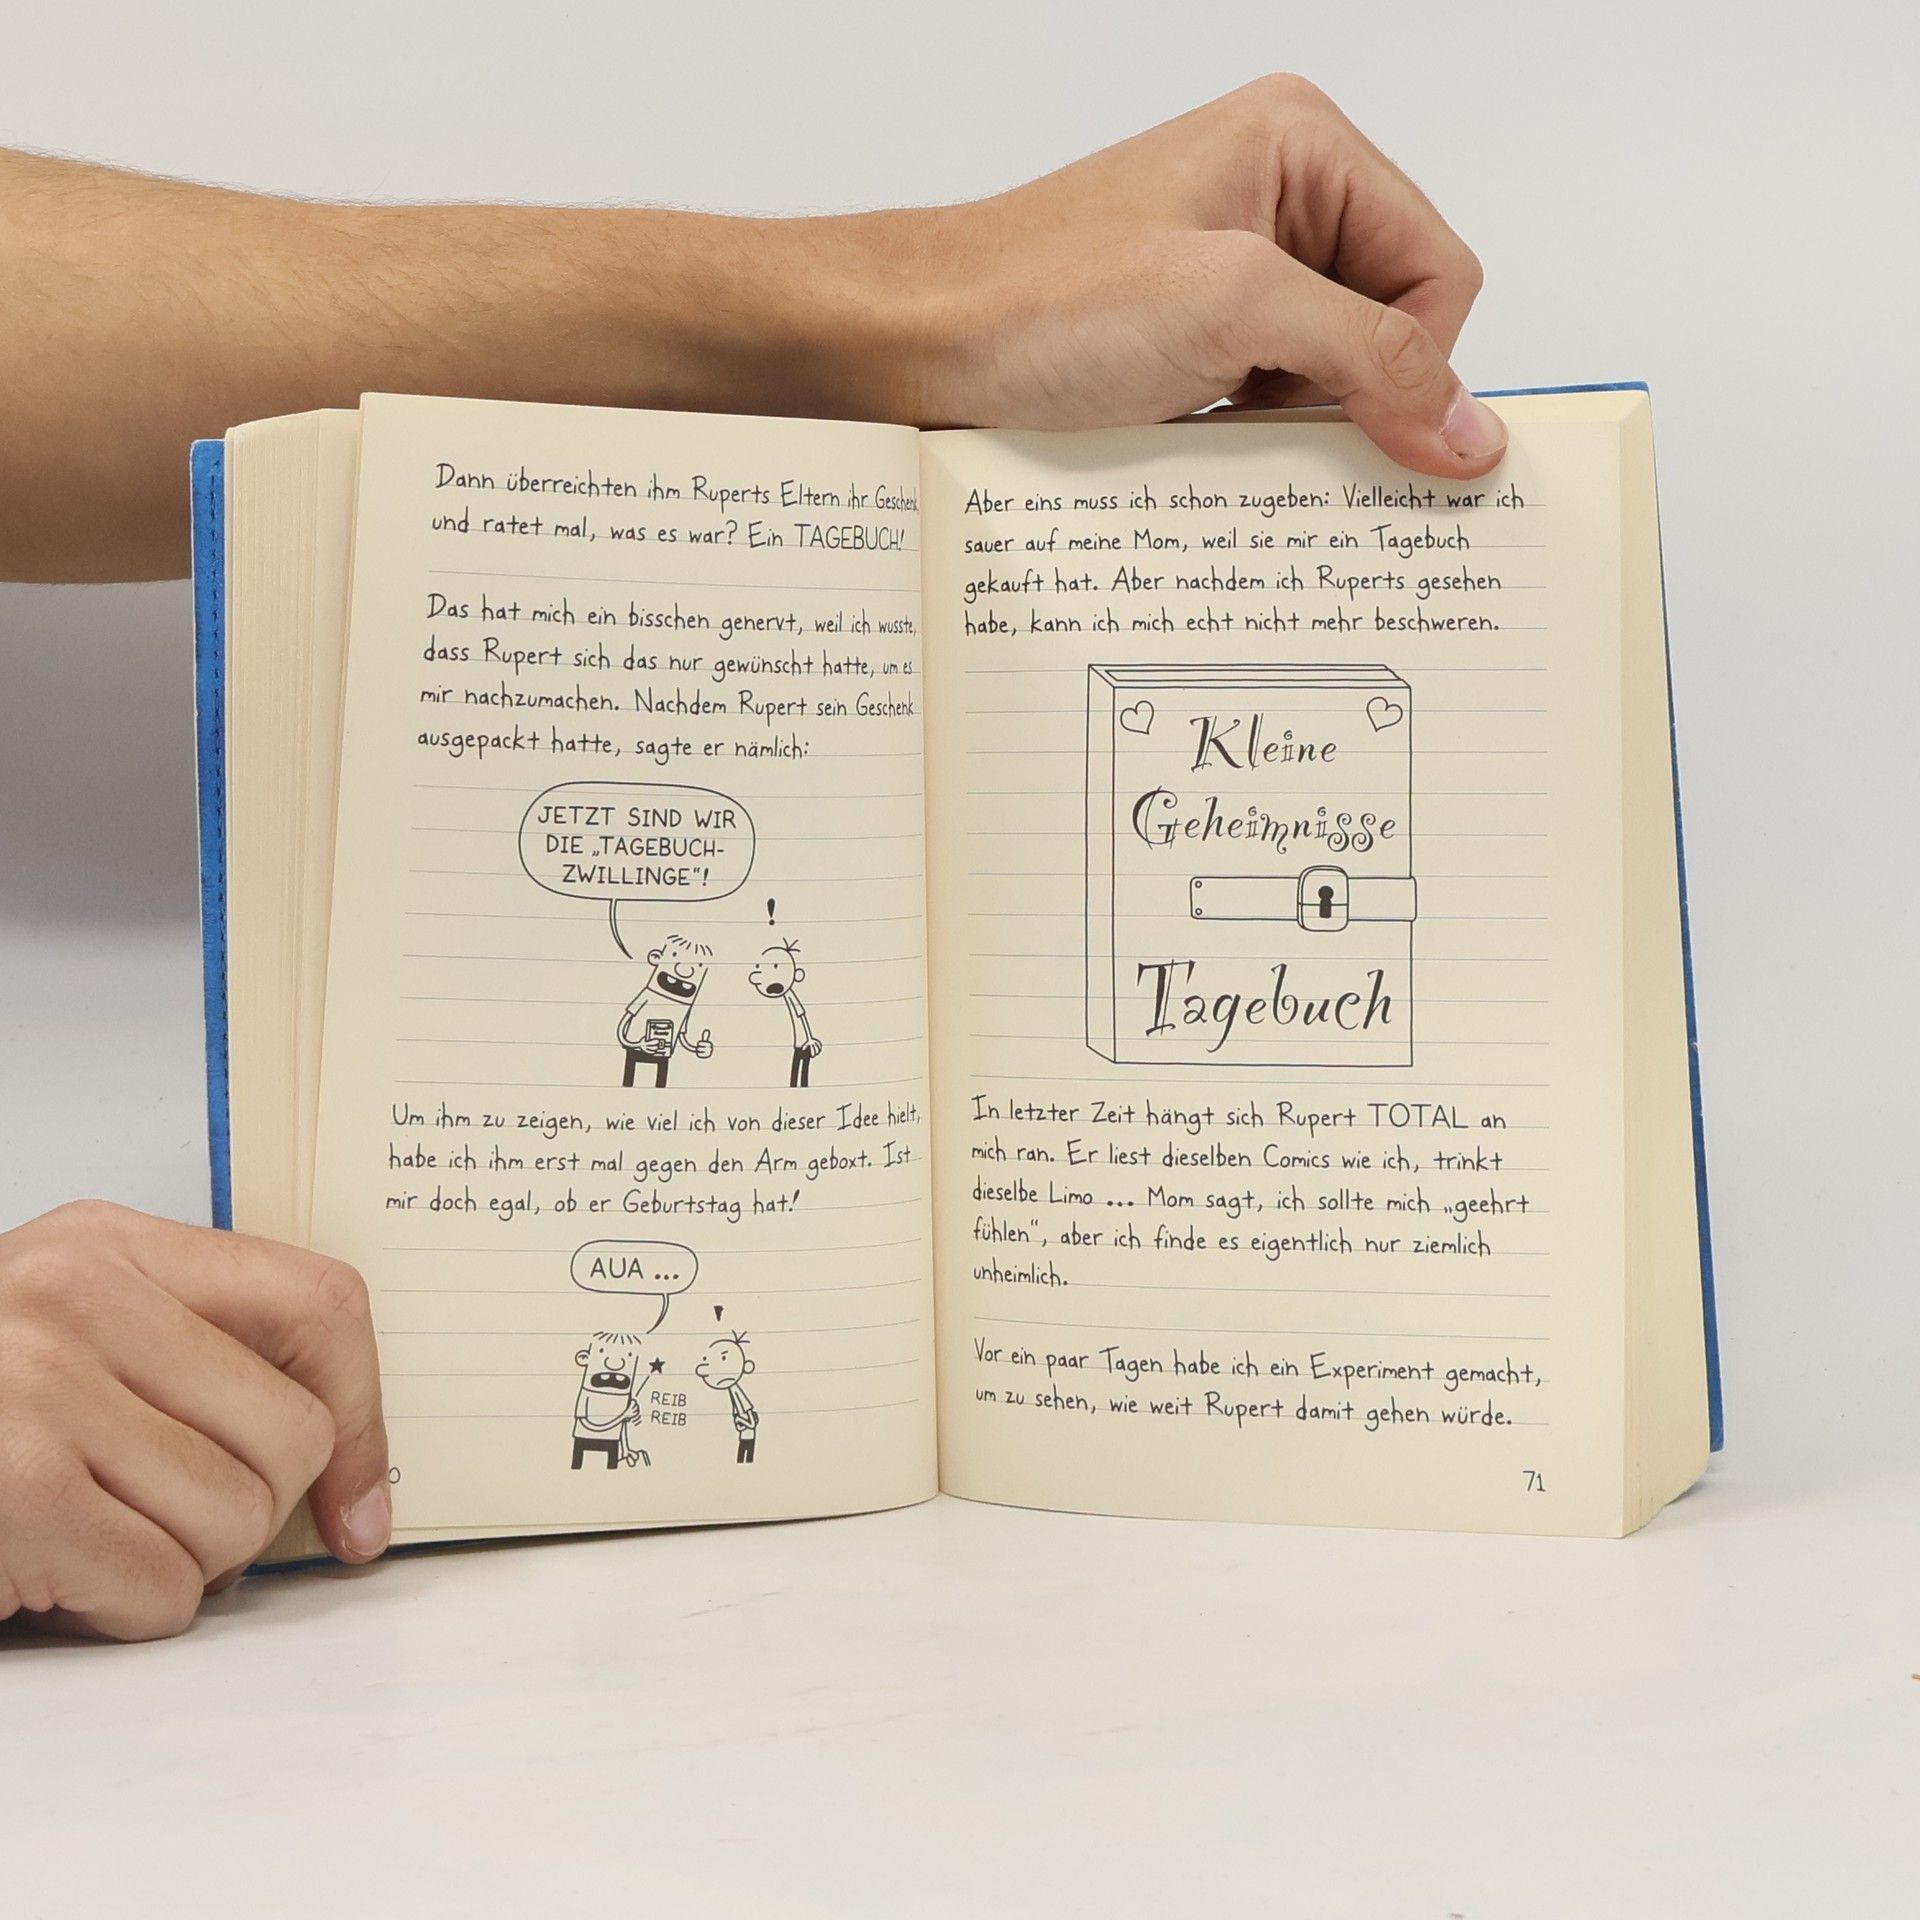 Dann überreichten ihm Ruperts Eltern ihr Geschenk
und ratet mal, was es war? Ein TAGEBUCH!
Das hat mich ein bisschen genervt, weil ich wusste,
dass Rupert sich das nur gewünscht hatte, um es
mir nachzumachen. Nachdem Rupert sein Geschenk
ausgepackt hatte, sagte er nämlich:
JETZT SIND WIR
DIE „TAGEBUCH-
ZWILLINGE“!
!
Um ihm zu zeigen, wie viel ich von dieser Idee hielt,
habe ich ihm erst mal gegen den Arm geboxt. Ist
mir doch egal, ob er Geburtstag hat!
AUA ...
REIB
REIB
0
Aber eins muss ich schon zugeben: Vielleicht war ich
sauer auf meine Mom, weil sie mir ein Tagebuch
gekauft hat. Aber nachdem ich Ruperts gesehen
habe, kann ich mich echt nicht mehr beschweren.
Kleine
Geheimnisse
Tagebuch
In letzter Zeit hängt sich Rupert TOTAL an
mich ran. Er liest dieselben Comics wie ich, trinkt
dieselbe Limo ... Mom sagt, ich sollte mich „geehrt
fühlen“, aber ich finde es eigentlich nur ziemlich
unheimlich.
Vor ein paar Tagen habe ich ein Experiment gemacht,
um zu sehen, wie weit Rupert damit gehen würde.
71